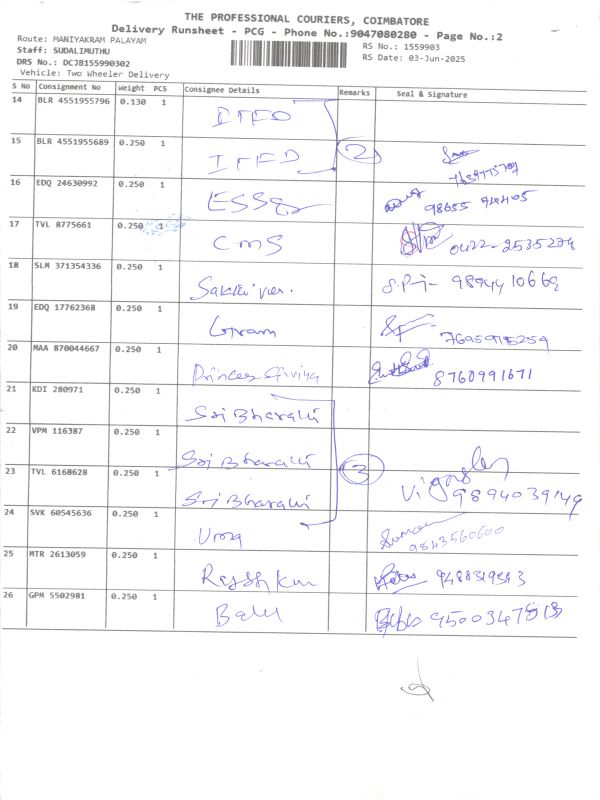 THE PROFESSIONAL COURIERS, COIMBATORE
Delivery Runsheet - PCG - Phone No.:9047080280 - Page No.:2
Route: MANIYAKRAM PALAYAM
RS No.: 1559903
Staff: SUDALIMUTHU
RS Date: 03-Jun-2025
DRS No.: DCJB155990302
Vehicle: Two Wheeler Delivery
S No Consignment No Weight PCS Consignee Details Remarks Seal & Signature
14 BLR 4551955796 0.130 1
15 BLR 4551955689 0.250 1 2
16 EDQ 24630992 0.250 1
17 TVL 8775661 0.250 1 CMS 0422-2535274
18 SLM 371354336 0.250 1 S.P.j- 9894410669
19 EDQ 17762368 0.250 1
20 MAA 870044667 0.250 1 8760991671
21 KDI 280971 0.250 1 Sri Bharathi
22 VPM 116387 0.250 1 Sri Bharathi
23 TVL 6168628 0.250 1 Sri Bharathi 3 9894039149
24 SVK 60545636 0.250 1 Uma 9843560600
25 MTR 2613059 0.250 1
26 GPM 5502981 0.250 1 Balu